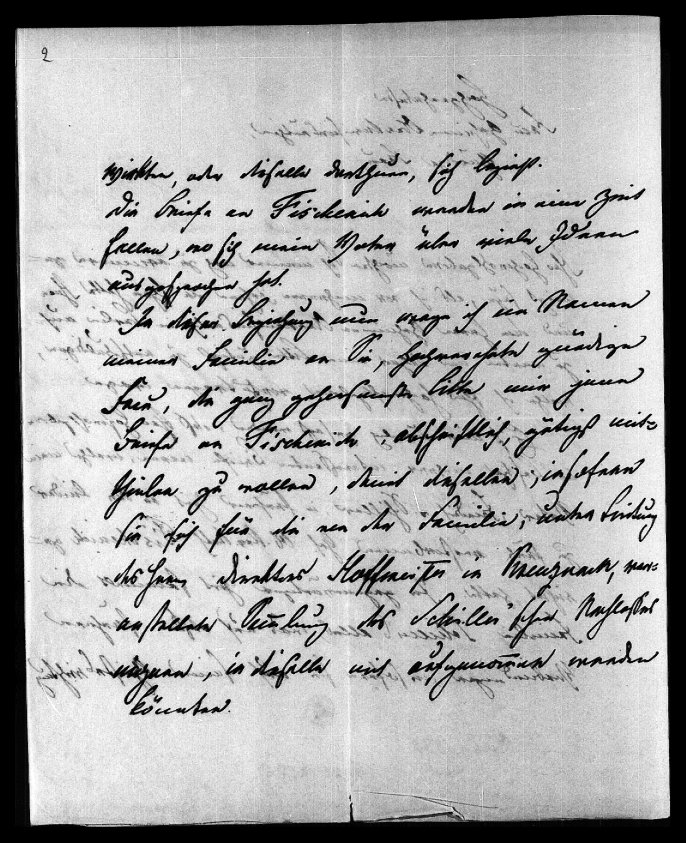 2
wirkten, oder dieselbe darthuen, sich bezieht.
Die Briefe an Fischenich werden in eine Zeit
fallen, wo sich mein Vater über viele Ideen
ausgesprochen hat.
In dieser Beziehung nun wage ich im Namen
meiner Familie an Sie, hochverehrte gnädige
Frau, die ganz gehorsamste Bitte mir jene
Briefe an Fischenich, abschriftlich, gütigst mit-
theilen zu wollen, damit dieselben, insofern
sie sich für die von der Familie, unter Leitung
des Herrn Direktors Hoffmeister in Kreuznach, ver-
anstaltete Sammlung des Schiller'schen Nachlasses
eignen, in dieselbe mit aufgenommen werden
könnten.